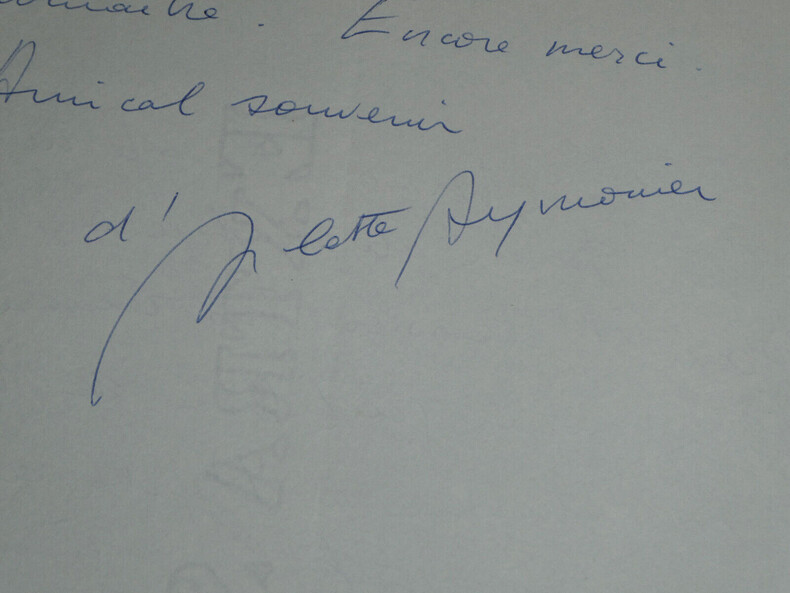 Encore merci.
Amical souvenir
d'Arlette Aymonier